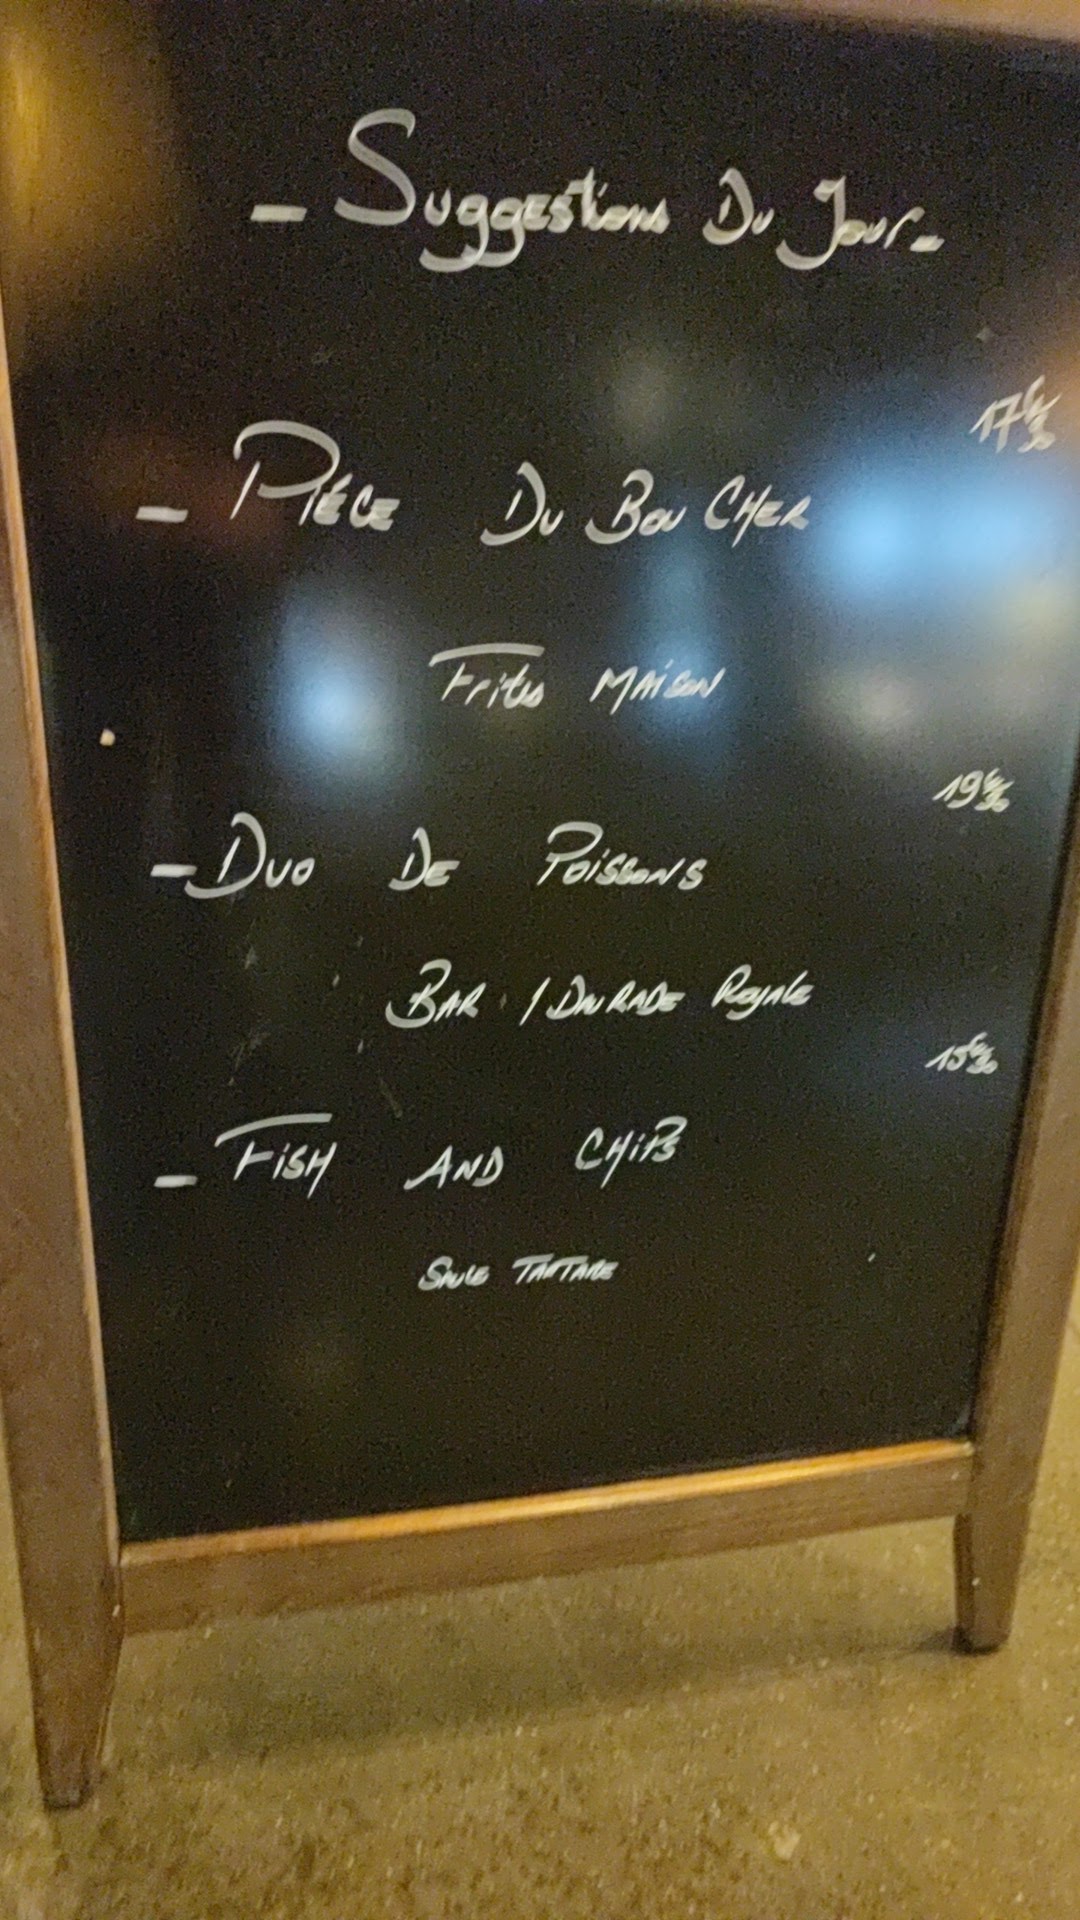 - Suggestions Du Jour -
17€50
- Piéce Du Boucher
Frites Maison
19€50
- Duo De Poissons
Bar / Daurade Royale
15€50
- Fish And Chips
Sauce Tartare